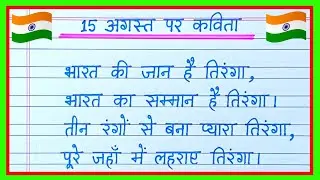 15 अगस्त पर कविता
भारत की जान है तिरंगा,
भारत का सम्मान है तिरंगा।
तीन रंगों से बना प्यारा तिरंगा,
पूरे जहाँ में लहराए तिरंगा।